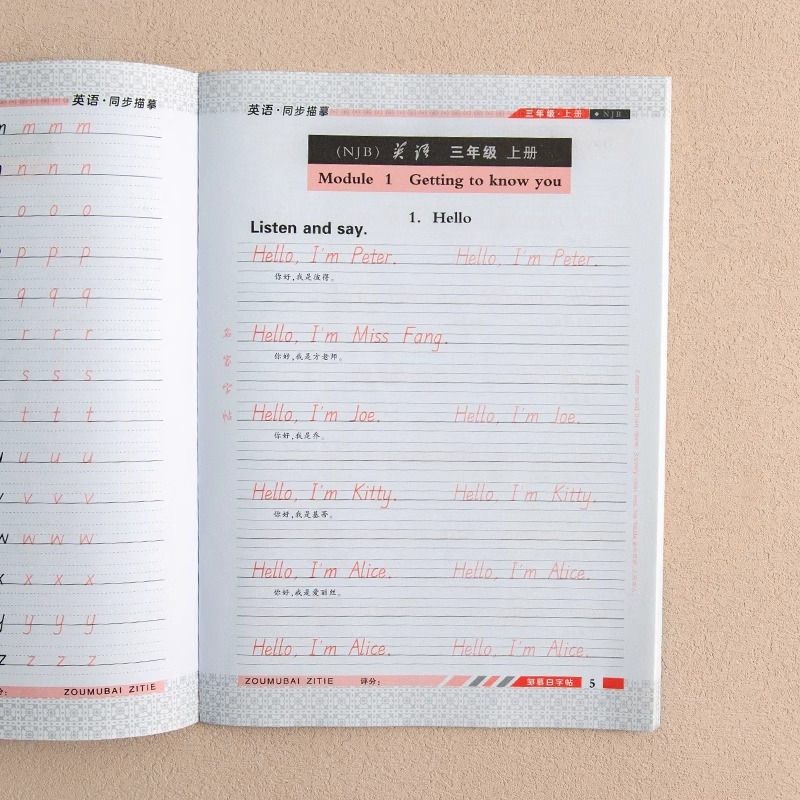 英语·同步描摹
m m m m
n n n
o o o
p p p
q q q
r r r
s s s
t t t
u u u
v v v
w w w w
x x x x
y y y y
z z z z
ZOUMUBAI ZITIE
英语·同步描摹
三年级·上册 ◆ NJB
(NJB) 英语 三年级 上册
Module 1 Getting to know you
1. Hello
Listen and say.
Hello, I'm Peter. Hello, I'm Peter.
你好,我是彼得。
Hello, I'm Miss Fang.
你好,我是方老师。
Hello, I'm Joe. Hello, I'm Joe.
你好,我是乔。
Hello, I'm Kitty. Hello, I'm Kitty.
你好,我是基蒂。
Hello, I'm Alice. Hello, I'm Alice.
你好,我是爱丽丝。
Hello, I'm Alice. Hello, I'm Alice.
名家字帖
ZOUMUBAI ZITIE 评分:
邹慕白字帖 5